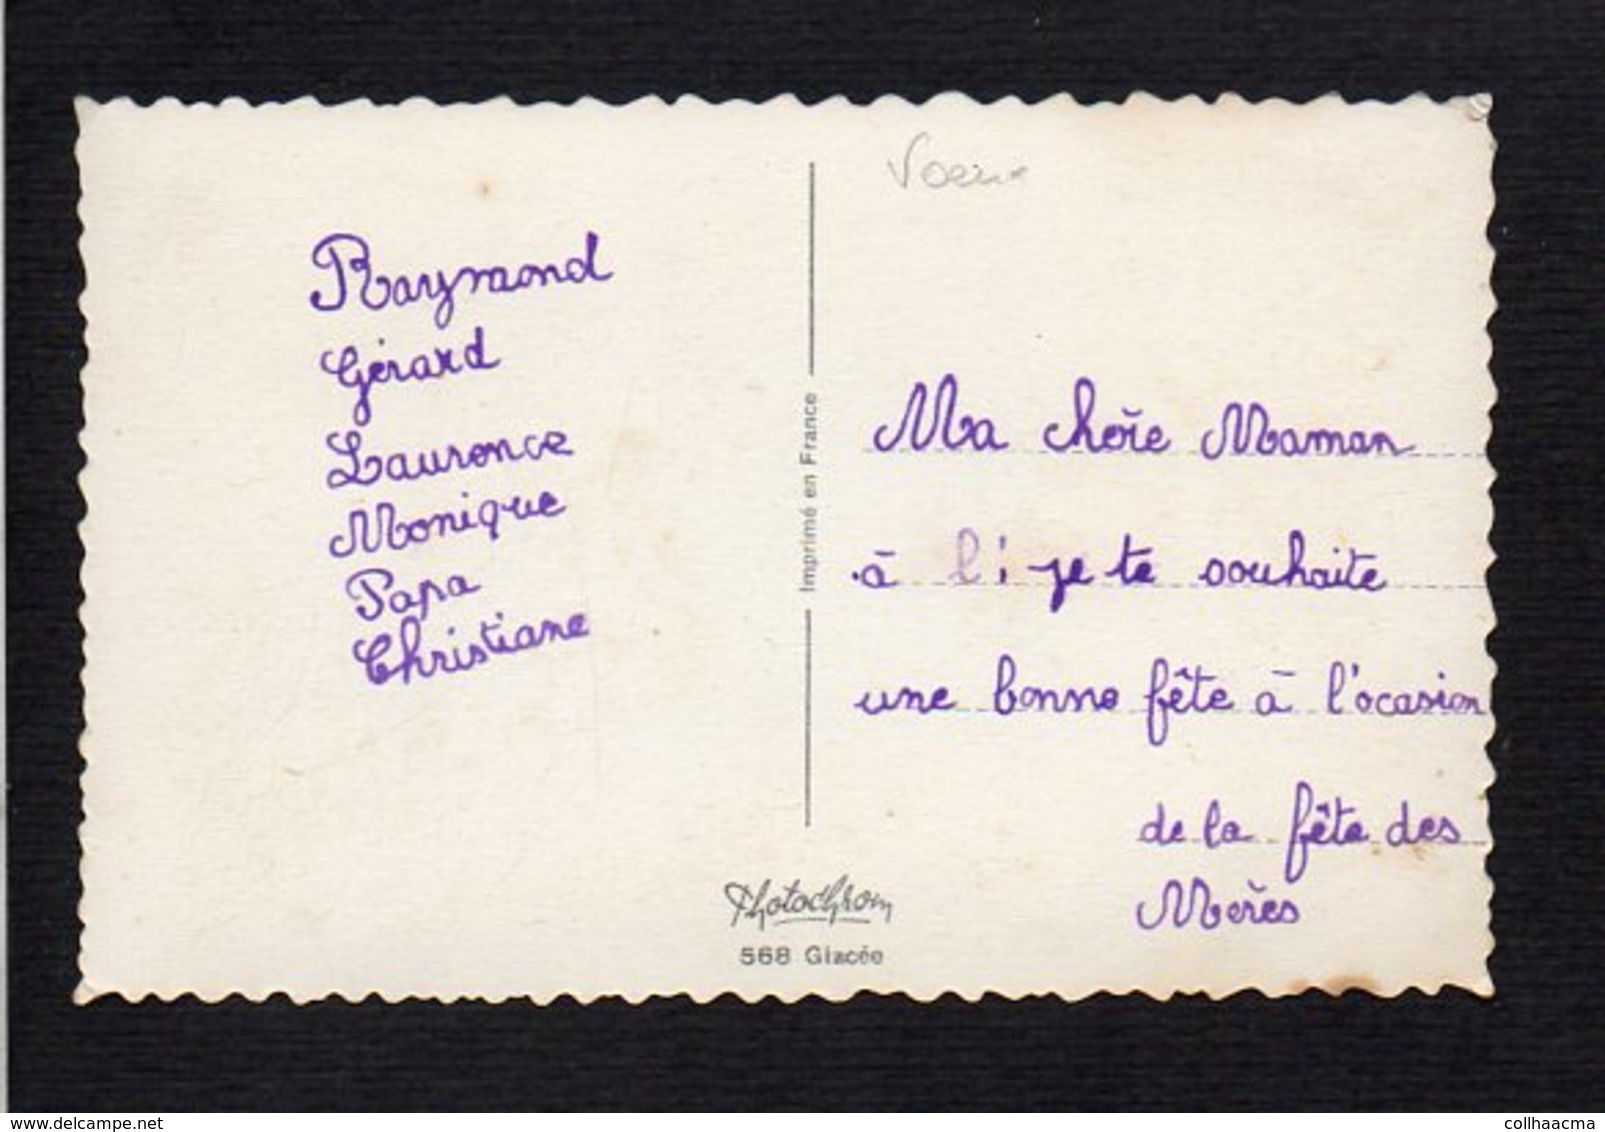 Voeux
Raymond
Gérard
Laurence
Monique
Papa
Christiane
Imprimé en France
Ma chère Maman
à l' je te souhaite
une bonne fête à l'ocasion
de la fête des
Mères
Photochrom
568 Glacée
delcampe.net
collhaacma